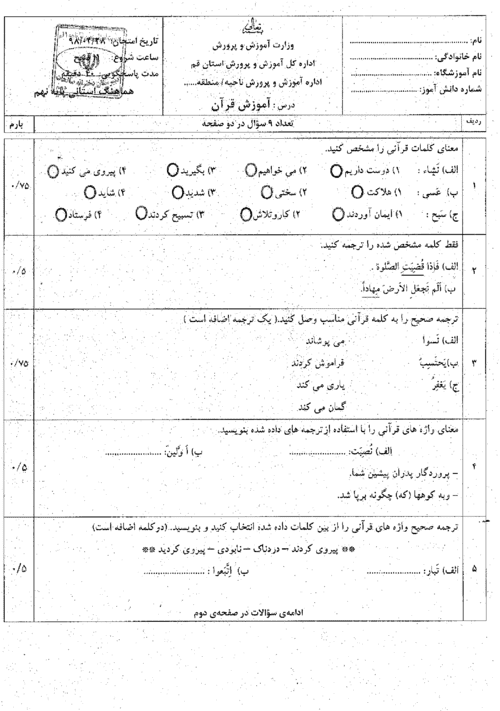 نام:
نام خانوادگی:
نام آموزشگاه:
شماره دانش آموز:
وزارت آموزش و پرورش
اداره کل آموزش و پرورش استان قم
اداره آموزش و پرورش ناحیه/ منطقه.....
درس : آموزش قرآن
تاریخ امتحان:
ساعت شروع:
مدت پاسخگویی: ۴۰ دقیقه
هماهنگ استانی پایه نهم
ردیف تعداد ۹ سؤال در دو صفحه بارم
۱ معنای کلمات قرآنی را مشخص کنید. ۰/۷۵
الف) تَشاء : ۱) درست داریم ۲) می خواهیم ۳) بگیرید ۴) پیروی می کنید
ب) عَسی : ۱) هلاکت ۲) سختی ۳) شدید ۴) شاید
ج) سَبح : ۱) ایمان آوردند ۲) کاروتلاش ۳) تسبیح کردند ۴) فرستاد
۲ فقط کلمه مشخص شده را ترجمه کنید. ۰/۵
الف) فَإذا قُضِیَت الصَّلوة .
ب) ألَم نَجعَلِ الأرضَ مِهاداً.
۳ ترجمه صحیح را به کلمه قرآنی مناسب وصل کنید.( یک ترجمه اضافه است ) ۰/۷۵
الف) نَسوا می پوشاند
ب)یَحسَبُ فراموش کردند
ج) یَغفِرُ یاری می کند
گمان می کند
۴ معنای واژه های قرآنی را با استفاده ازترجمه های داده شده بنویسید. ۰/۵
الف) نُصِبَت: .................... ب) أوَّلین: ....................
– پروردگار پدران پیشین شما.
– وبه کوهها (که) چگونه برپا شد.
۵ ترجمه صحیح واژه های قرآنی را از بین کلمات داده شده انتخاب کنید و بنویسید. (دوکلمه اضافه است) ۰/۵
** پیروی کردند – دردناک – نابودی – پیروی کردید **
الف) تَبار: .................... ب) اِتَّبَعوا : ....................
ادامه‌ی سؤالات در صفحه‌ی دوم